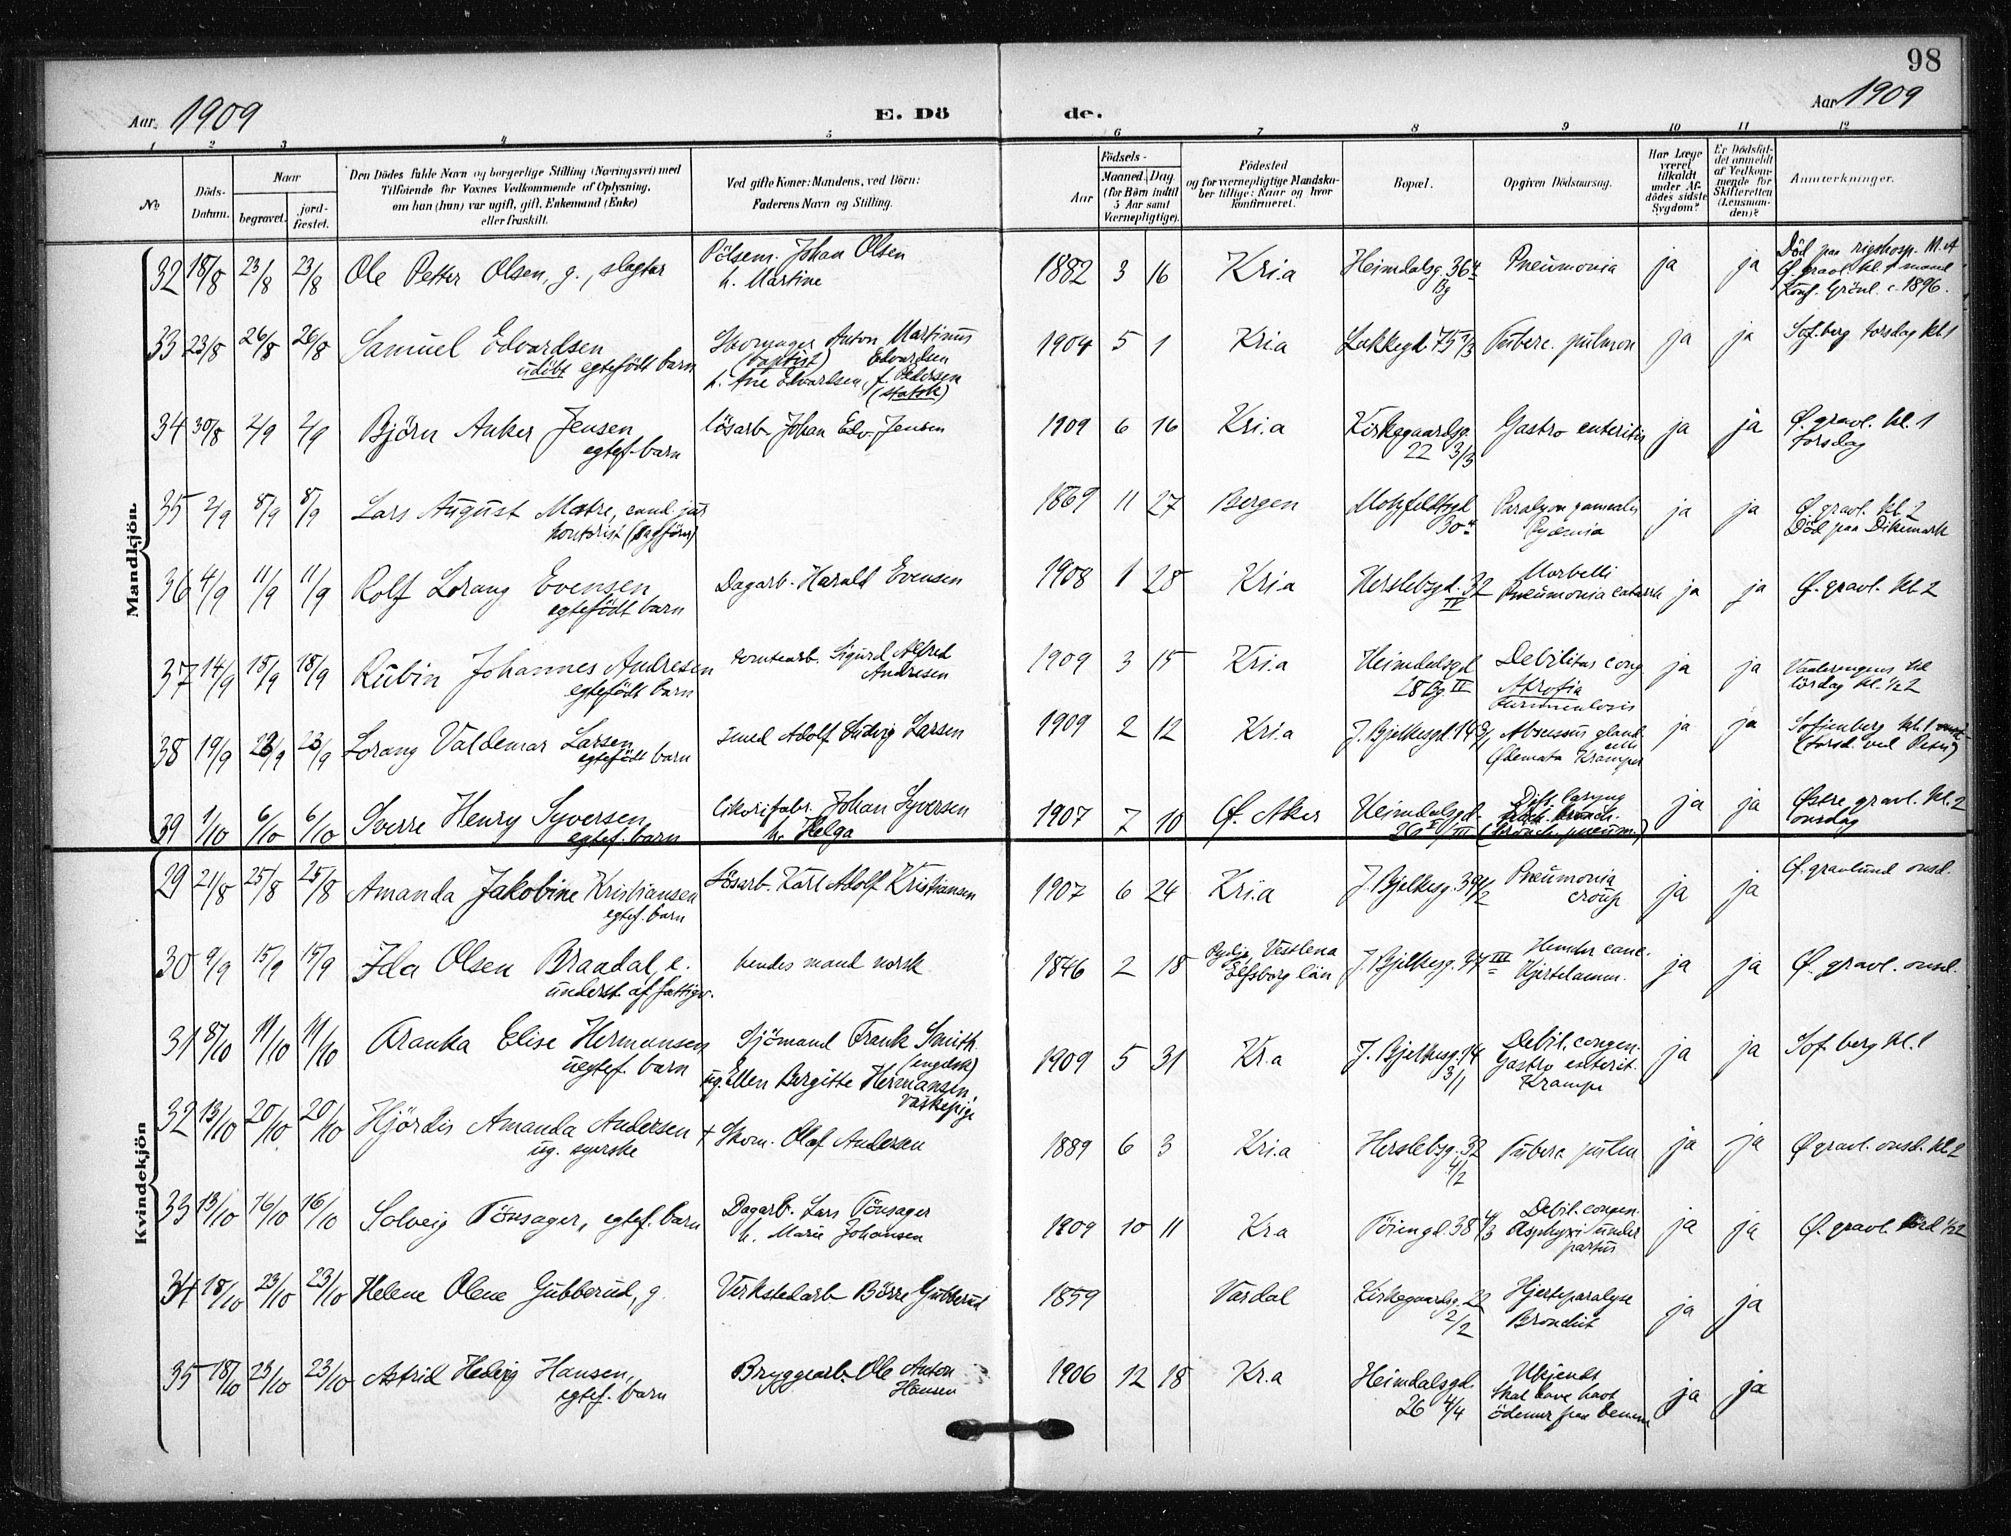 98
Aar 1909
E. Döde.
Aar 1909
1 2 3 4 5 6 7 8 9 10 11 12
No
Döds-Datum.
Naar
begravet.
jordfæstet.
Den Dödes fulde Navn og borgerlige Stilling (Næringsvei) med
Tilføiende for Voxnes Vedkommende af Oplysning,
om han (hun) var ugift, gift, Enkemand (Enke)
eller fraskilt.
Ved gifte Koner: Mandens, ved Børn:
Faderens Navn og Stilling.
Födsels-
Aar
Maaned. Dag.
(for Börn indtil
5 Aar samt
Værnepligtige).
Födested
og for værnepligtige Mandskaber tillige: Naar og hvor
konfirmeret.
Bopæl.
Opgiven Dödsaarsag.
Har Læge været tilkaldt under Afdödes sidste Sygdom?
Er Dödsfaldet anmeldt af Vedkommende for Skifteretten (Lensmanden)?
Anmerkninger.
Mandkjön.
32 18/8 23/8 23/8 Ole Petter Olsen, g., slagter Pölsem. Johan Olsen h. Martine 1882 3 16 Kri.a Heimdalsg. 36 4 Bg Pneumonia ja ja Död paa rigshosp. M. et Ø. gravl. kl. 1 mand. Konf. Grönl. c. 1896.
33 23/8 26/8 26/8 Samuel Edvardsen udöbt egtefödt barn Anton Martinus Edvardsen (baptist) h. Ane Edvardsen, f. Pedersen (statsk) 1904 5 1 Kri.a Lakkegd. 75 1/3 Tuberc. pulmon ja ja Sof.berg torsdag kl. 1
34 30/8 2/9 2/9 Björn Anker Jensen egtef. barn lösarb. Johan Edv. Jensen 1909 6 16 Kri.a Kirkegaardsg. 22 3/3 Gastro enteritis ja ja Ø. gravl. kl. 1 torsdag
35 2/9 8/9 8/9 Lars August Matre, cand. jur. kontorist 1869 11 27 Bergen Motzfeldtsgd. 30 4 ja ja Ø. gravl. kl. 2 Död paa Dikemark
36 4/9 11/9 11/9 Rolf Lorang Evensen egtefödt barn Dagarb. Harald Evensen 1908 1 28 Kri.a Herslebsgd. 32 IV Morbelli Pneumonia catarrh ja ja Ø. gravl. kl. 2
37 14/9 18/9 18/9 Rubin Johannes Andresen egtefödt barn tomtearb. Sigurd Alfred Andresen 1909 3 15 Kri.a Heimdalsgd. 28 Bg II Debilitas cong Atrofia ja ja Vaalerengens kl. lördag kl. 1/2 2
38 19/9 23/9 23/9 Lorang Valdemar Larsen egtefödt barn smed Adolf Ludvig Larsen 1909 2 12 Kri.a J. Bjelkesgd. 14 3/1 Absessus gland. Ødemata Kramper ja ja Sofienberg kl. 1
39 1/10 6/10 6/10 Sverre Henry Syversen egtef. barn Cikorifabr. Johan Syversen h. Helga 1907 7 10 Ø. Aker Heimdalsgd. 26 II/III Dift. laryng. (Bronch. pneum.) ja ja Østre gravl. kl. 2 onsdag
Kvindekjön
29 21/8 25/8 25/8 Amanda Jakobine Kristiansen egtef. barn Lösarb. Karl Adolf Kristiansen 1907 6 24 Kri.a J. Bjelkesg. 39 4/2 Pneumonia croup ja ja Ø. gravlund onsd.
30 9/9 15/9 15/9 Ida Olsen Braadal, e. underst. af fattigv. hendes mand norsk 1846 2 18 Elfsborg län J. Bjelkesg. 97 III Hjertelamm. ja ja Ø. gravl. onsd.
31 8/10 11/10 11/10 Aranka Elise Hermansen uegtef. barn Sjömand Frank Smith (engelsk) ug. Ellen Birgitte Hermansen, vaskepige 1909 5 31 Kr.a J. Bjelkesg. 14 3/1 Debil. congen. Gastro enterit. Krampe ja ja Sof. berg kl. 1
32 13/10 20/10 20/10 Hjördis Amanda Andersen ug. syerske + Skom. Olaf Andersen 1889 6 3 Kri.a Herslebsg. 32 4/2 Tuberc. pulm ja ja Ø gravl. onsd. kl. 2
33 13/10 16/10 16/10 Solveig Tönsager, egtef. barn Dagarb. Lars Tönsager h. Marie Johansen 1909 10 11 Kr.a Töiengd. 38 4/3 Debil. congen. Asphyxi under partus ja ja Ø. gravl. lörd. 1/2 2
34 18/10 23/10 23/10 Helene Olene Gubberud, g. Verkstedarb. Börre Gubberud 1859 Vardal Kirkegaardsg. 22 2/2 Hjerteparalyse Bronchit ja ja
35 18/10 23/10 23/10 Astrid Hedvig Hansen, egtef. barn Bryggearb. Ole Anton Hansen 1906 12 18 Kr.a Heimdalsgd. 26 4/4 Ubkjendt Skal have havt ödemer paa benene ja ja